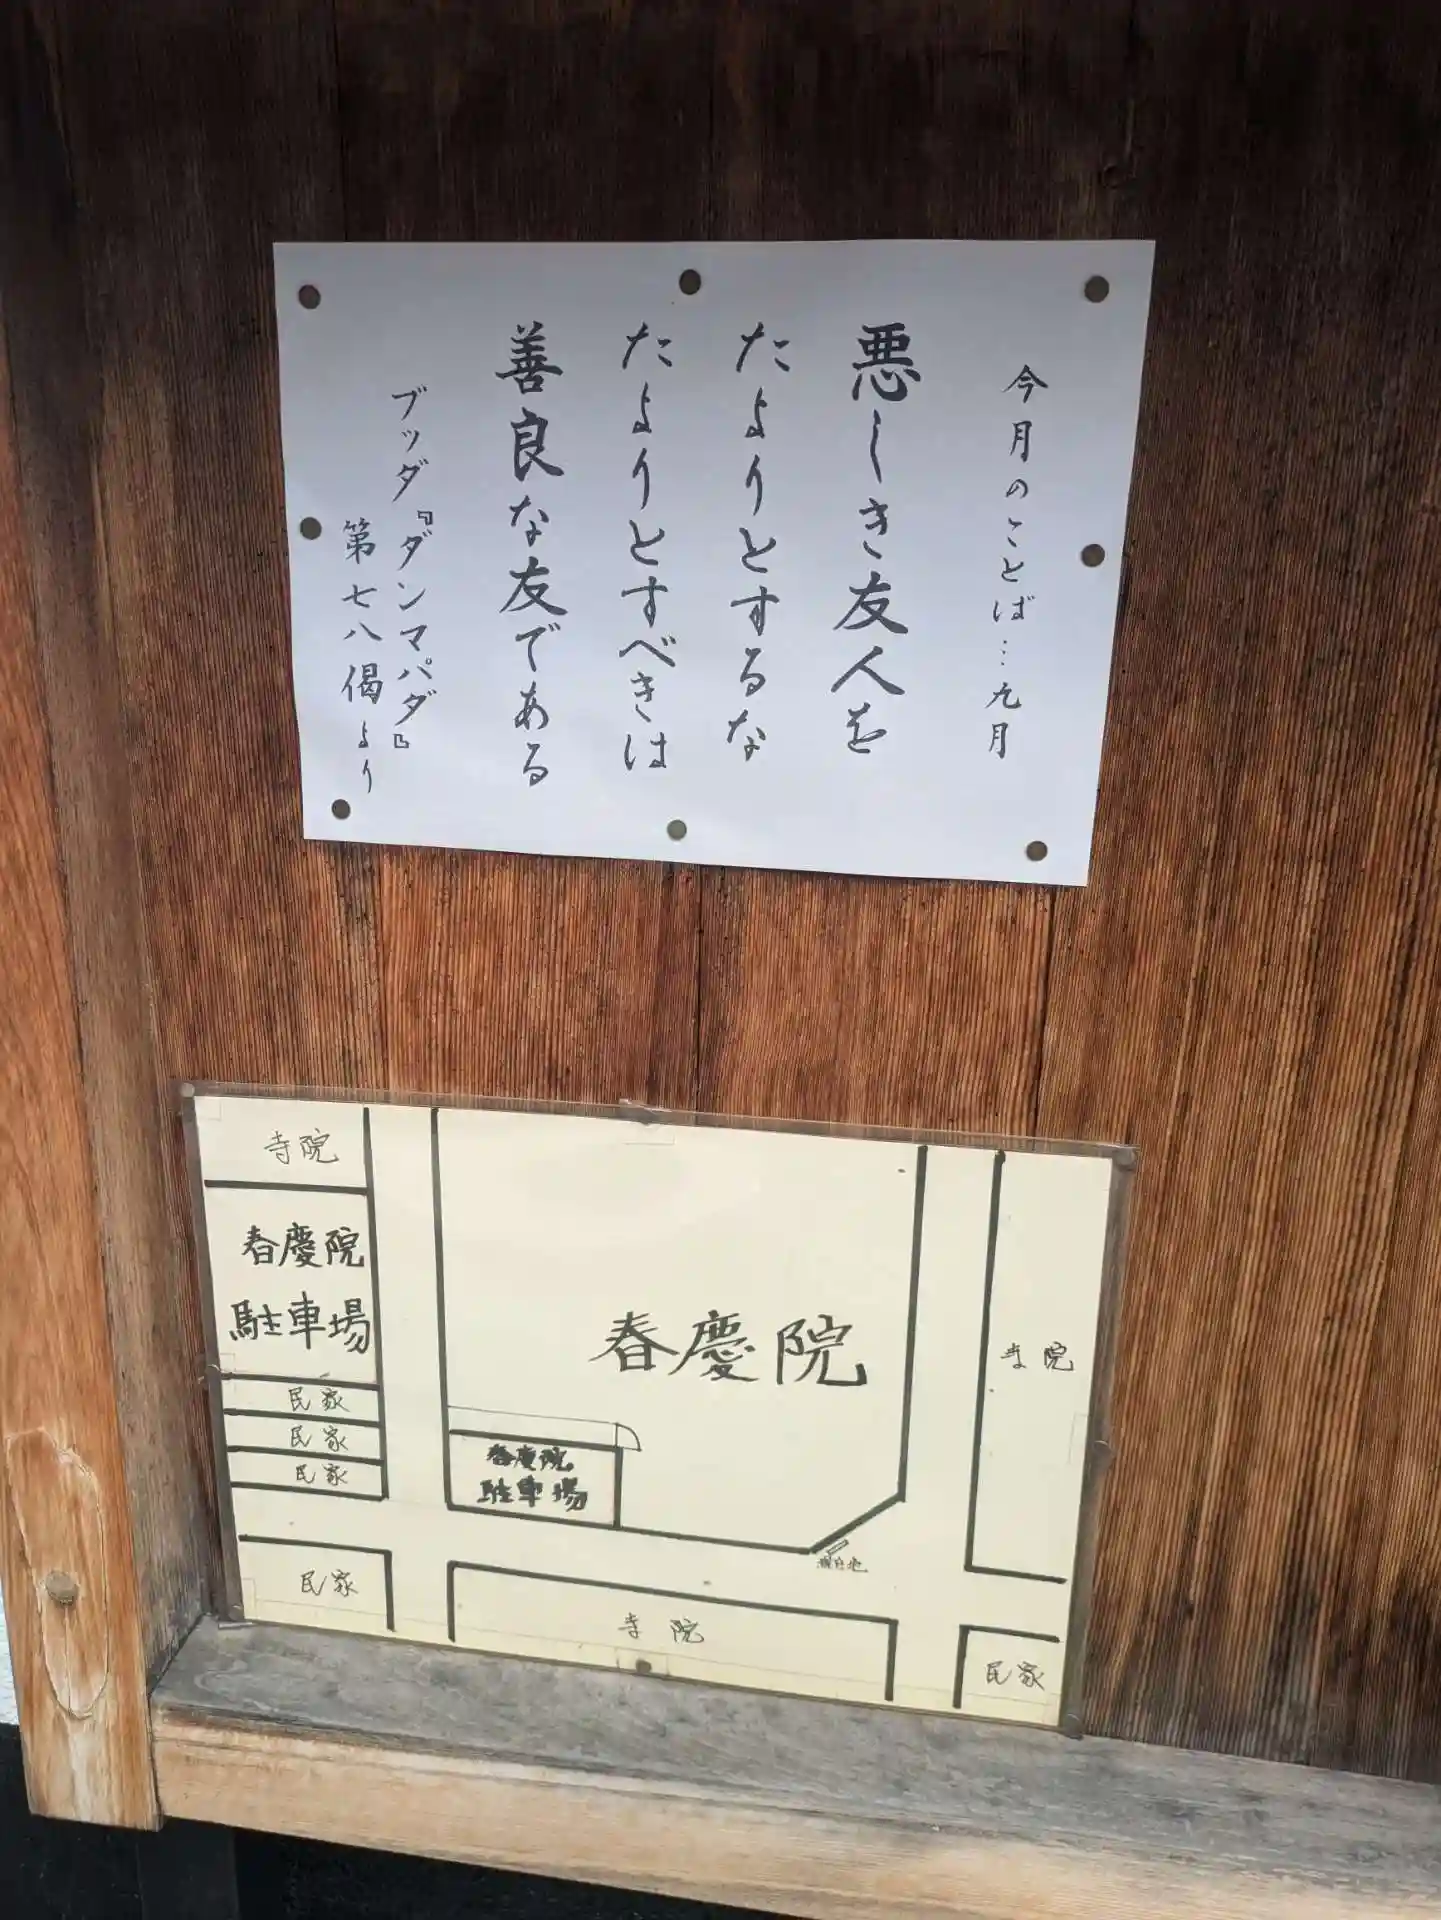 今月のことば…九月
悪しき友人を
たよりとするな
たよりとすべきは
善良な友である
ブッダ『ダンマパダ』
第七八偈より
寺院
春慶院
駐車場
民家
民家
民家
民家
春慶院
春慶院
駐車場
現在地
寺院
寺院
民家